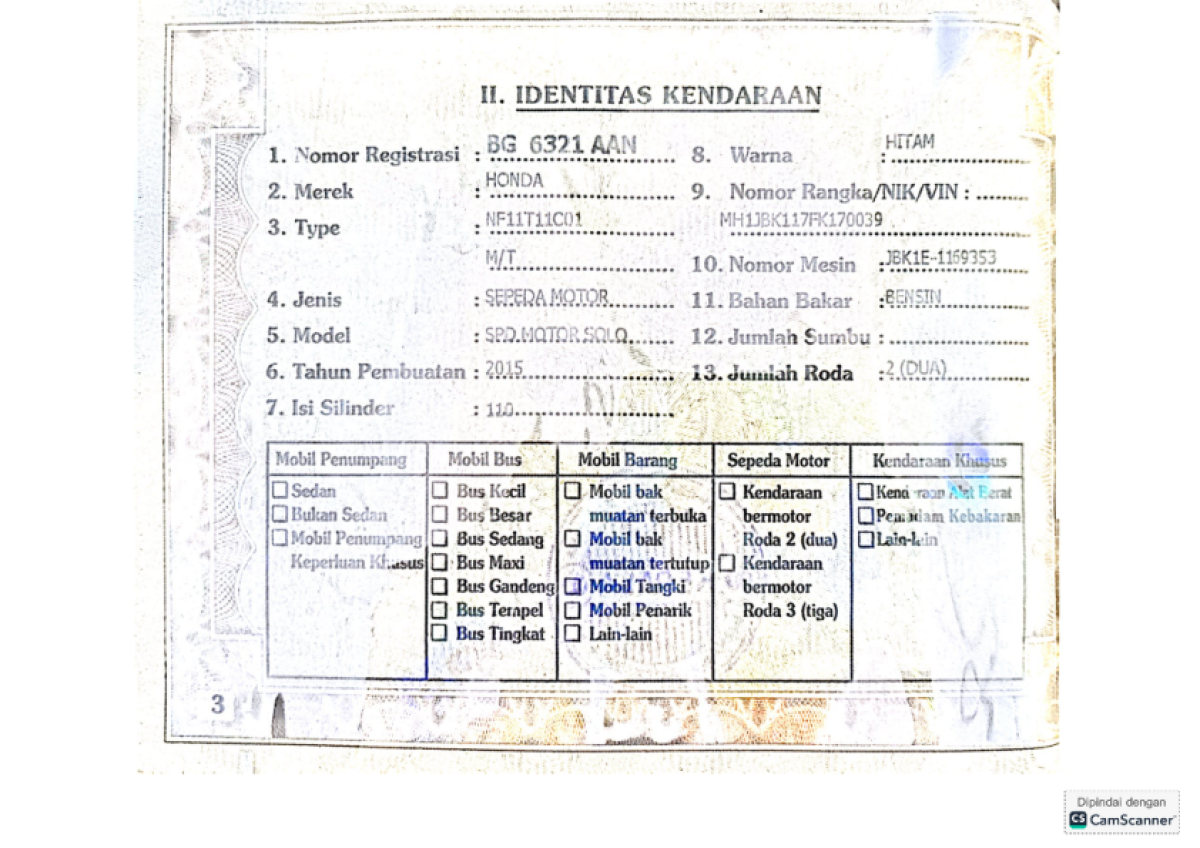 II. IDENTITAS KENDARAAN
1. Nomor Registrasi : BG 6321 AAN
2. Merek : HONDA
3. Type : NF11T11C01
M/T
4. Jenis : SEPEDA MOTOR
5. Model : SPD.MOTOR SOLO
6. Tahun Pembuatan : 2015
7. Isi Silinder : 110
8. Warna : HITAM
9. Nomor Rangka/NIK/VIN :
MH1JBK117FK170039
10. Nomor Mesin : JBK1E-1169353
11. Bahan Bakar : BENSIN
12. Jumlah Sumbu :
13. Jumlah Roda : 2 (DUA)
Mobil Penumpang
Sedan
Bukan Sedan
Mobil Penumpang
Keperluan Khusus
Mobil Bus
Bus Kecil
Bus Besar
Bus Sedang
Bus Maxi
Bus Gandeng
Bus Tempel
Bus Tingkat
Mobil Barang
Mobil bak
muatan terbuka
Mobil bak
muatan tertutup
Mobil Tangki
Mobil Penarik
Lain-lain
Sepeda Motor
Kendaraan
bermotor
Roda 2 (dua)
Kendaraan
bermotor
Roda 3 (tiga)
Kendaraan Khusus
Kendaraan Alat Berat
Pemadam Kebakaran
Lain-lain
3
Dipindai dengan
CS CamScanner